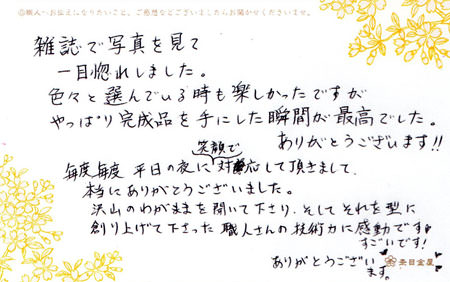 ⑤職人へお伝えになりたいこと、ご感想などございましたらお聞かせくださいませ。
雑誌で写真を見て
一目惚れしました。
色々と選んでいる時も楽しかったですが
やっぱり完成品を手にした瞬間が最高でした。
ありがとうございます!!
笑顔で
毎度毎度 平日の夜に対応して頂きまして
本当にありがとうございました。
沢山のわがままを聞いて下さり、そして それを型に
創り上げて下さった 職人さんの技術力に感動です♥
すごいです!
ありがとうござい
ます。
杢目金屋